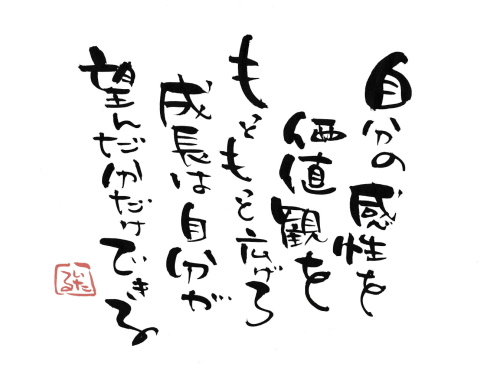 自分の感性を
価値観を
もっともっと広げろ
成長は自分が
望んだ分だけできる